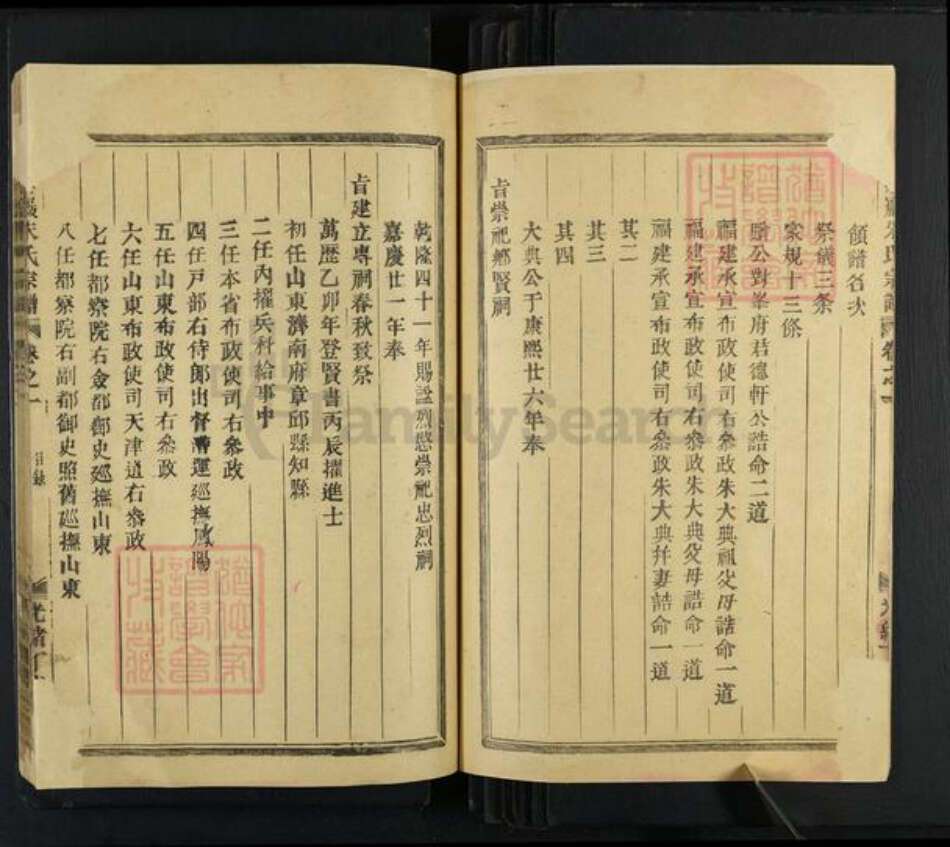 領譜名次
祭儀三条
家規十三條
贈公對峯府君德軒公誥命二道
福建承宣布政使司右叅政朱大典祖父母誥命一道
福建承宣布政使司右叅政朱大典父母誥命一道
福建承宣布政使司右叅政朱大典幷妻誥命一道
其二
其三
其四
大典公于康熙廿六年奉
旨崇祀鄉賢祠
乾隆四十一年賜諡烈愍崇祀忠烈祠
嘉慶廿一年奉
旨建立專祠春秋致祭
萬歷乙卯年登賢書丙辰擢進士
初任山東濟南府章邱縣知縣
二任內擢兵科給事中
三任本省布政使司右叅政
四任戶部右侍郎出督漕運廵撫鳳陽
五任山東布政使司右叅政
六任山東布政使司天津道右叅政
七任都察院右僉都御史廵撫山東
八任都察院右副都御史照舊廵撫山東
朱氏宗譜 卷之一
目錄
光緒丁
FamilySearch